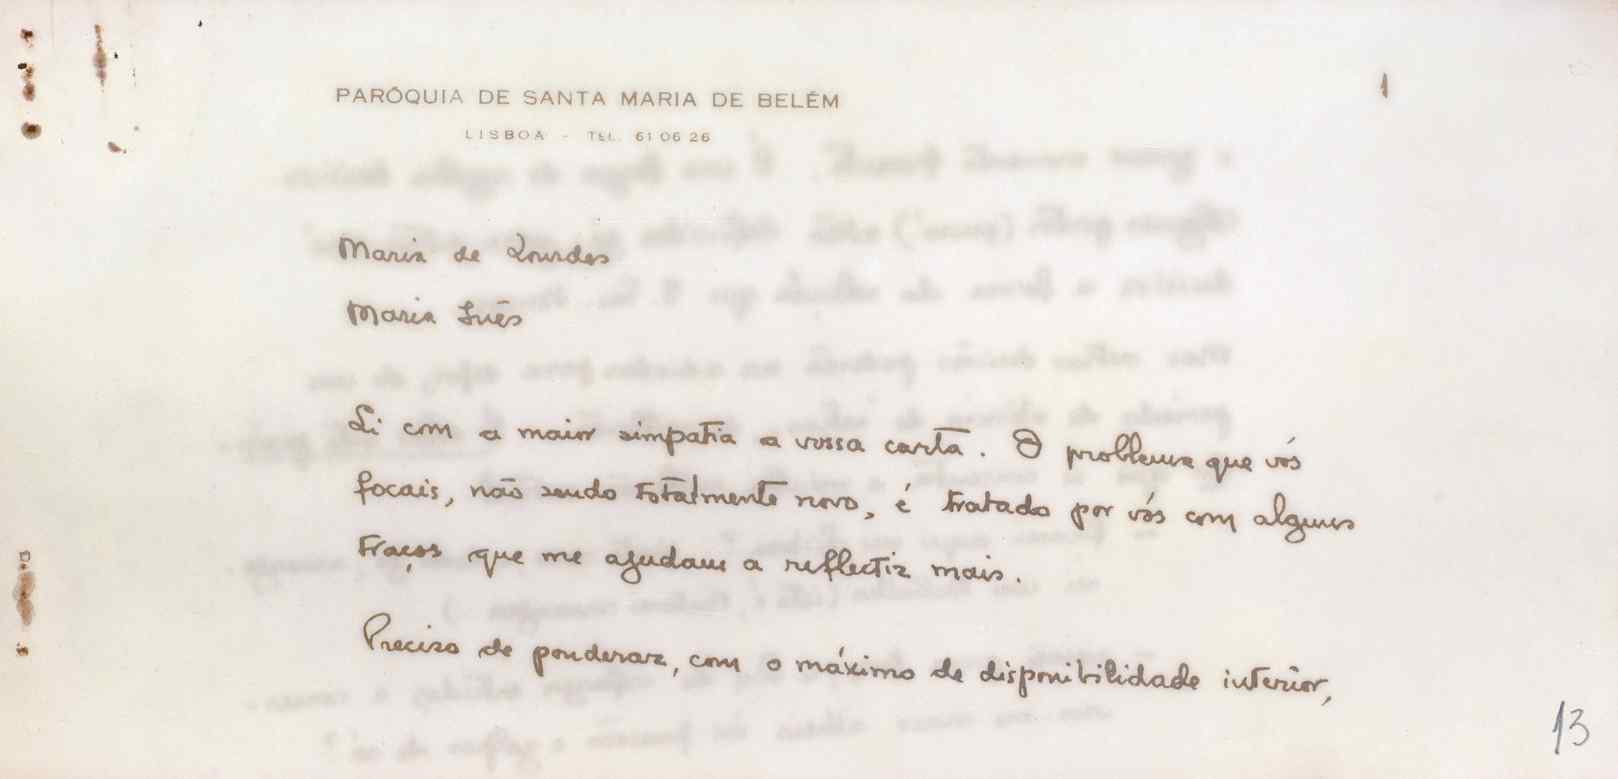 PARÓQUIA DE SANTA MARIA DE BELÉM
1
LISBOA - TEL. 61 06 26
Maria de Lourdes
Maria Inês
Li com a maior simpatia a vossa carta. O problema que vós
focais, não sendo totalmente novo, é tratado por vós com alguns
traços que me ajudam a reflectir mais.
Preciso de ponderar, com o máximo de disponibilidade interior,
13